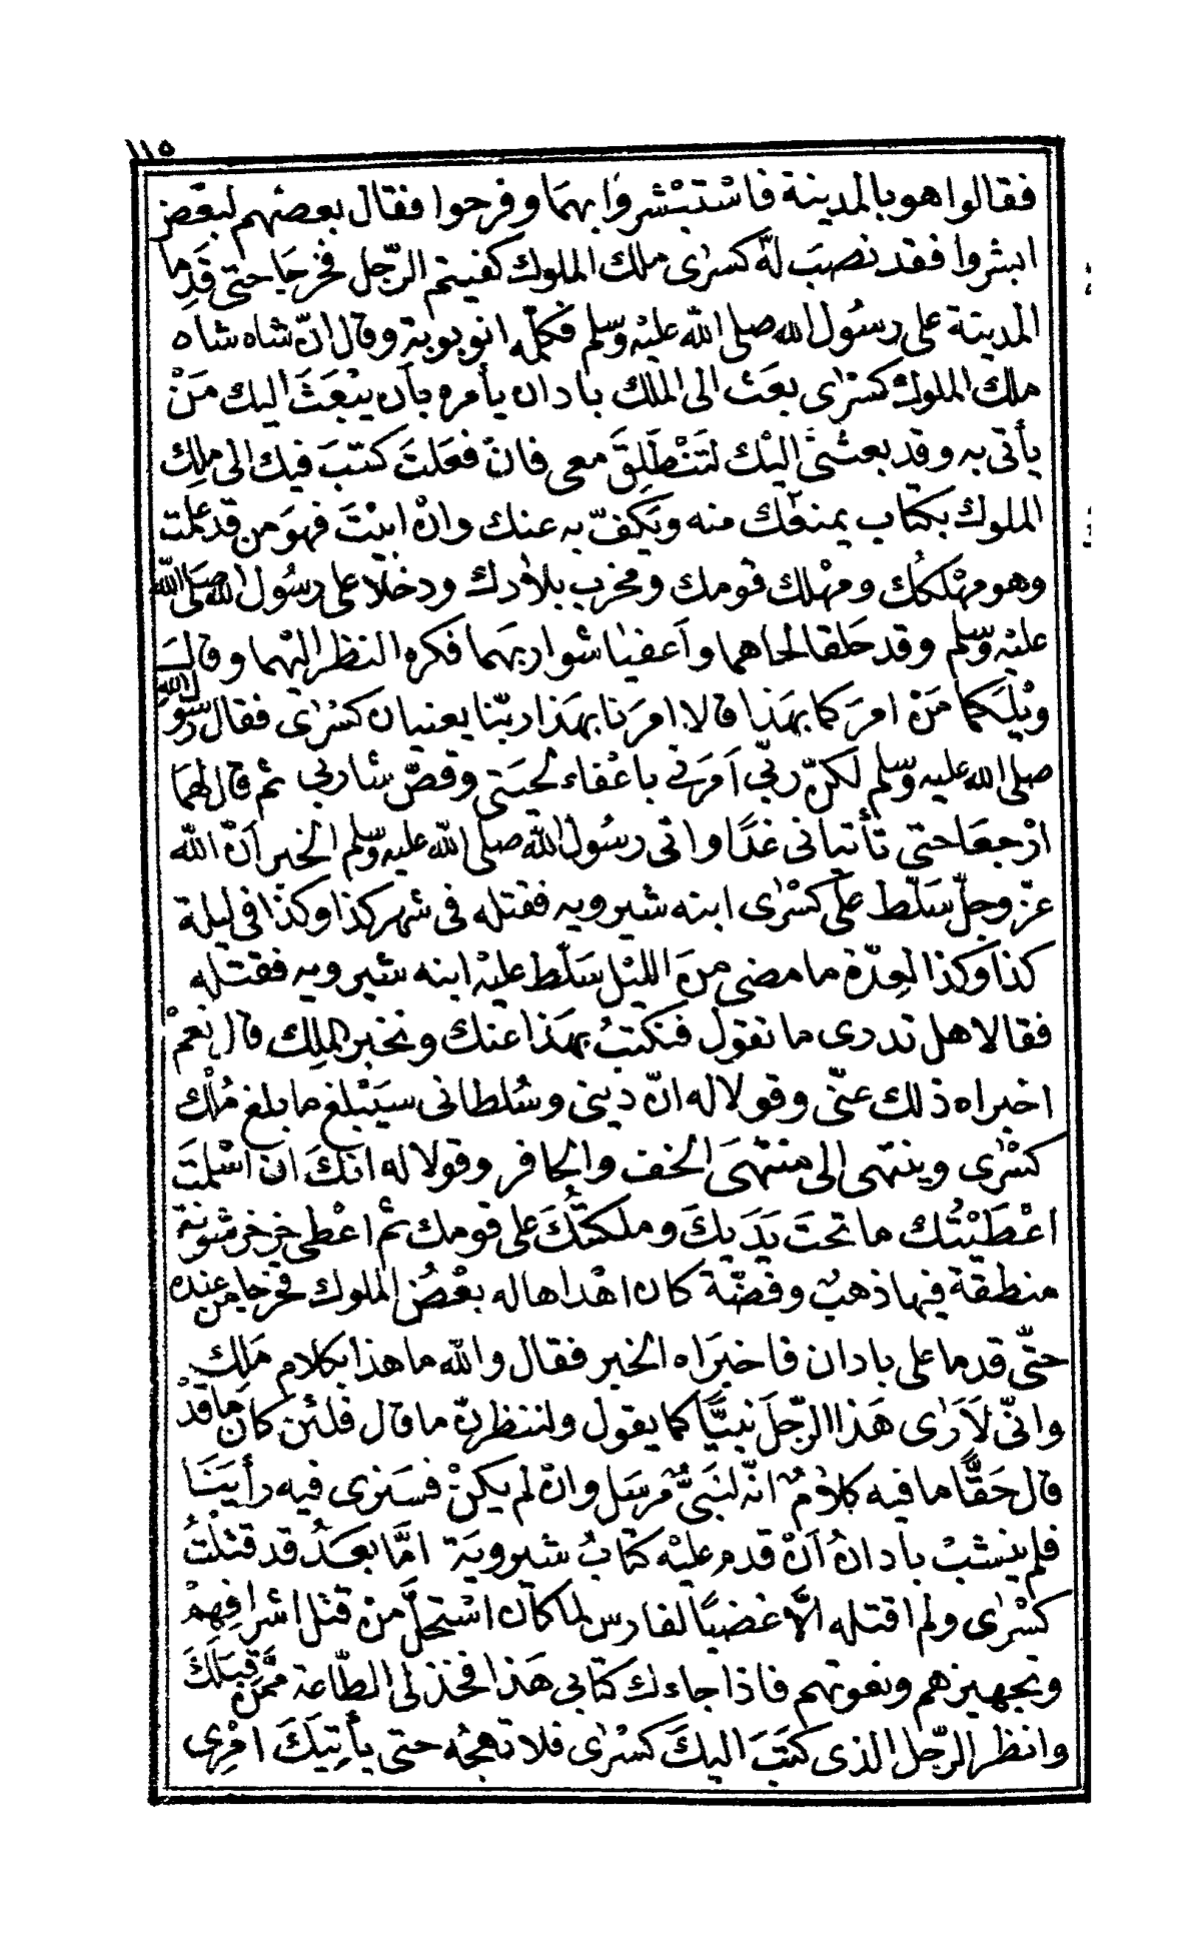 ١١٥
فقالوا هو بالمدينة فاسْتبْشروا بهمَا وفرحوا فقال بعضهم لبعَضٍ
ابشروا فقد نصبَ لهُ كسرٰى ملك الملوك كفيتم الرّجل فخرجَا حتى قَدِما
المدينة على رسُول الله صلى الله عليْه وسّلم فكلّمه انوبوية وقال انّ شاه شاه
ملك الملوك كسْرٰى بعَث الى الملك باذان يأمره بأن يبْعَثَ اليك مَنْ
يأتى به وقد بعثنَى اليْك لتَنْطَلِقَ معى فانْ فعَلتَ كتبَ فيك الى ملِك
الملوك بكتاب يمنعك منه ويَكفّ به عنك وانْ ابيْتَ فهوَ من قد علمت
وهو مهْلككُ ومهْلك قومك ومخرب بلادك ودخلا على رسُول الله صَلى الله
عليْه وسّلم وقد حَلقا لحاهما واَعفيا شواربهَما فكره النظر اليْهما وقالَ
ويْلَكما مَنْ امرَكما بهَذا قالا امرَنا بهَذا ربّنا يعنيان كسْرٰى فقال رسُول الله
صلى الله عليه وسّلم لكنّ ربّى اَمَرَنى باعْفاء لحيَتى وقصّ شاربى ثم قال لهمَا
ارْجعَا حتى تأتيانى غدًا واتى رسُول الله صلى الله عليه وسّلم الخبر اَنّ الله
عزّ وجلّ سَلّط على كسْرٰى ابنه شيرويه فقتله فى شهر كذا وكذا فى ليلة
كذا وكذا لعِدّة ما مضى منَ الليْل سَلّط عليْه ابنه شيرويه فقتله
فقالا هل تدرى ما تقول فنكتبُ بهَذا عنك ونخبر الملِك قال نعمْ
اخبراه ذلك عنّى وقولا له انّ دينى وسُلطانى سيَبْلغ ما بلغ مُلْك
كسْرٰى وينتهى الى منتهَى الخف والحافر وقولا له انكَ ان اسْلمتَ
اعْطَيْتُك ما تحتَ يَدَيكَ وملكتُكَ على قومك ثم اعْطى خرخرشونة
منطقة فيها ذهبٌ وفضّة كان اهْداها له بعْضُ الملوك فخرجا من عنده
حتّى قدما على باذان فاخبرَاه الخبر فقال والله ما هذا بكلام مَلِك
وانّى لاَرَى هَذا الرّجلَ نبيًّا كما يقول ولننتظرنّ ما قال فلئن كان مَا قدْ
قال حَقًّا ما فيه كلامٌ انّه لنَبىٌّ مرسَل وانْ لم يكنْ فسَنرى فيه رأيَنَا
فلم ينشبْ باذانُ اَنْ قدم عليْه كتابُ شيرويَة امَّا بعَدُ قد قتلْتُ
كسْرٰى ولم اقتله الّا غضبًا لفارس لما كان اسْتحلَّ منْ قتل اشرافِهمْ
وتجهيزهم وبعوثهم فاذا جاءك كتابى هَذا فخذ لى الطّاعة ممّنْ قِبَلَكَ
وانظر الرّجل الذى كتَبَ اليكَ كسْرٰى فلا تهجْه حتى يأتِيَكَ امْرِى